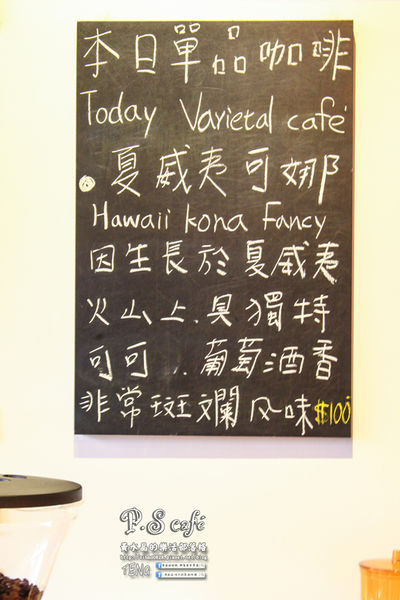 本日單品咖啡
Today Varietal café
夏威夷可娜
Hawaii kona Fancy
因生長於夏威夷
火山上.具獨特
可可..葡萄酒香
非常斑斕风味$100
P.S café
TENG